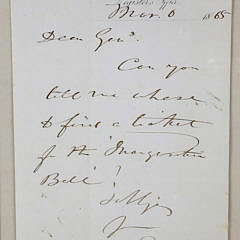 Mar. 6 1865
Dear Genl.
Can you
tell me where
to find a ticket
for the "Inauguration
Ball"!